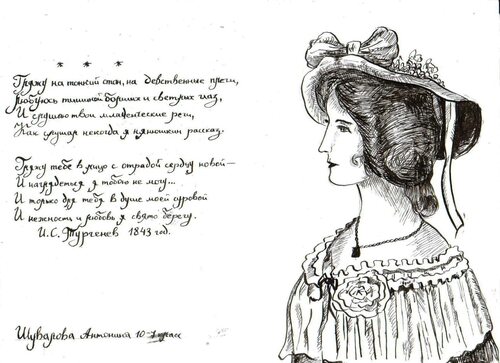 * * *
Гляжу на тонкий стан, на девственные плечи,
Любуюсь тишиной больших и светлых глаз,
И слушаю твои младенческие речи,
Как слушал некогда я нянюшкин рассказ.
Гляжу тебе в лицо с отрадой сердцу новой —
И наглядеться я тобою не могу...
И только для тебя в душе моей суровой
И нежность и любовь я свято берегу.
И.С. Тургенев 1843 год.
Шувалова Антонина 10 класс